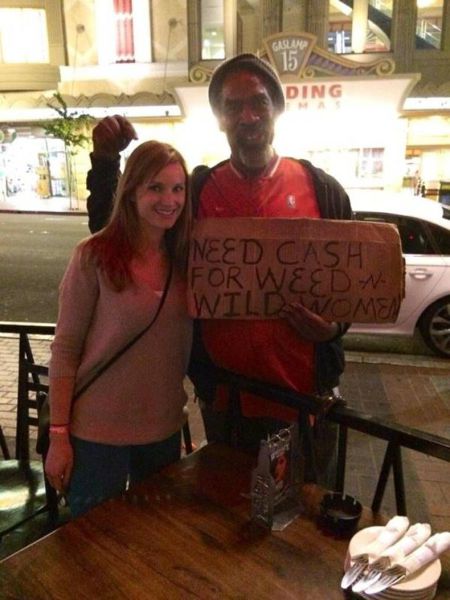 GASLAMP
15
DING
EMAS
NEED CASH
FOR WEED-N-
WILD WOMEN